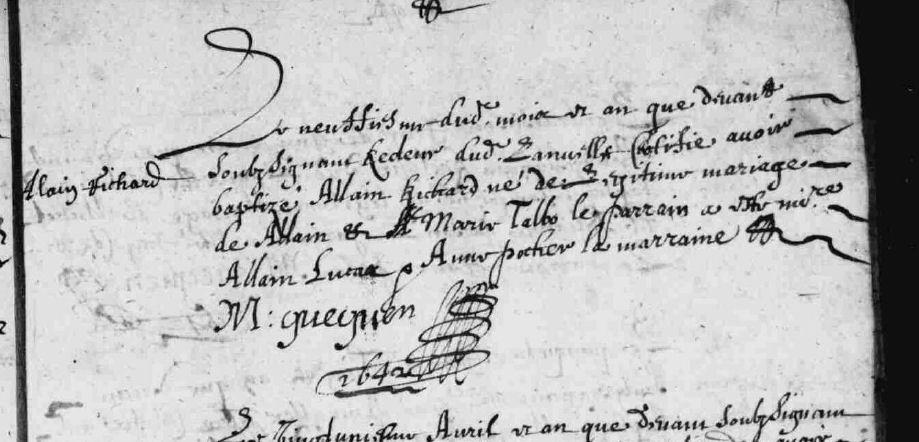 Le neuffiesme dud. mois et an que devant
Alain Richard
soubz signant Recteur dud. Lanvellec Certifie avoir
baptizé Allain Richard né de Legitime mariage
de Allain & Marie Talbo le parrain a esté mire
Allain Lucas & Anne pocher la marraine
M: gueguen
1642
Le vingtuniesme Avril et an que devant soubz signant